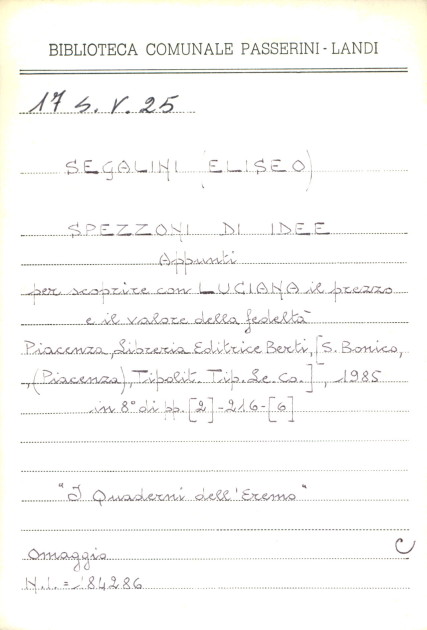 BIBLIOTECA COMUNALE PASSERINI - LANDI
17 S. V. 25
SEGALINI (ELISEO)
SPEZZONI DI IDEE
Appunti
per scoprire con LUCIANA il prezzo
e il valore della fedeltà
Piacenza, Libreria Editrice Berti, [S. Bonico,
(Piacenza), Tipolit. Tip. Le. Co.], 1985
in 8° di pp. [2]-216-[6]
"I Quaderni dell'Eremo"
Omaggio C
N.I. = 184286